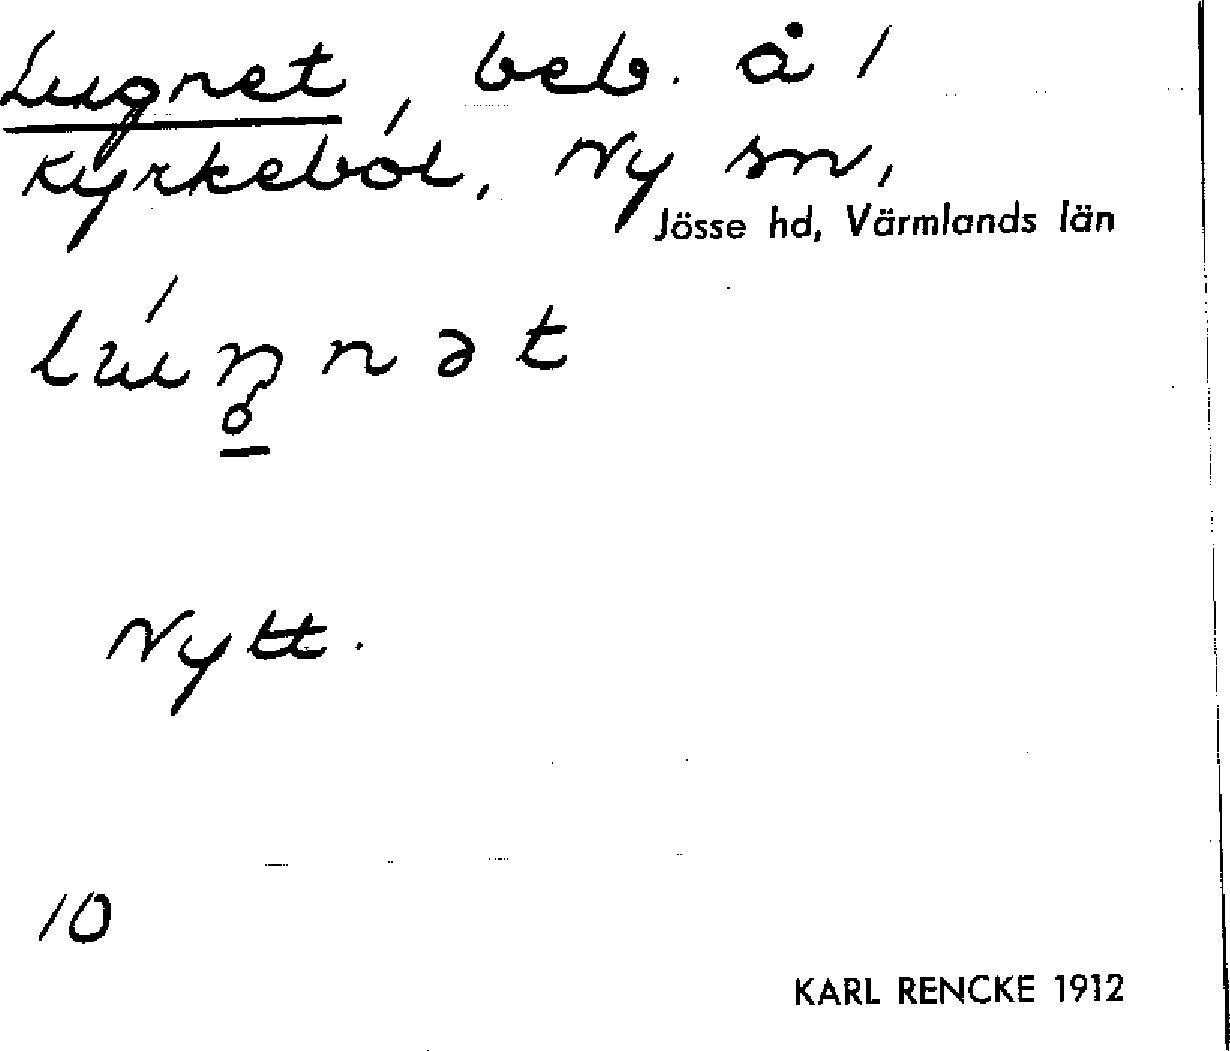 Lugnet, beb. å 1
Kyrkeból, Ny sn,
Jösse hd, Värmlands län
Nytt.
10
KARL RENCKE 1912